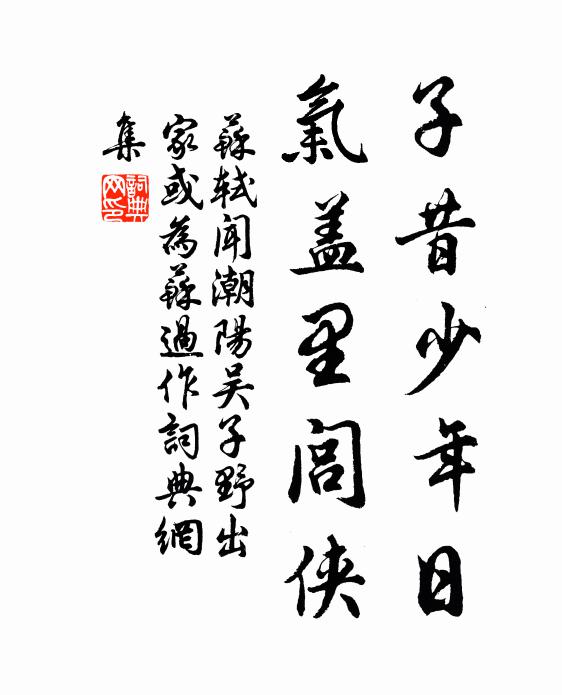 子昔少年日
氣盖里閭俠
蘇軾闻潮陽吴子野出
家或為蘇過作詞典網
集
詞典网印